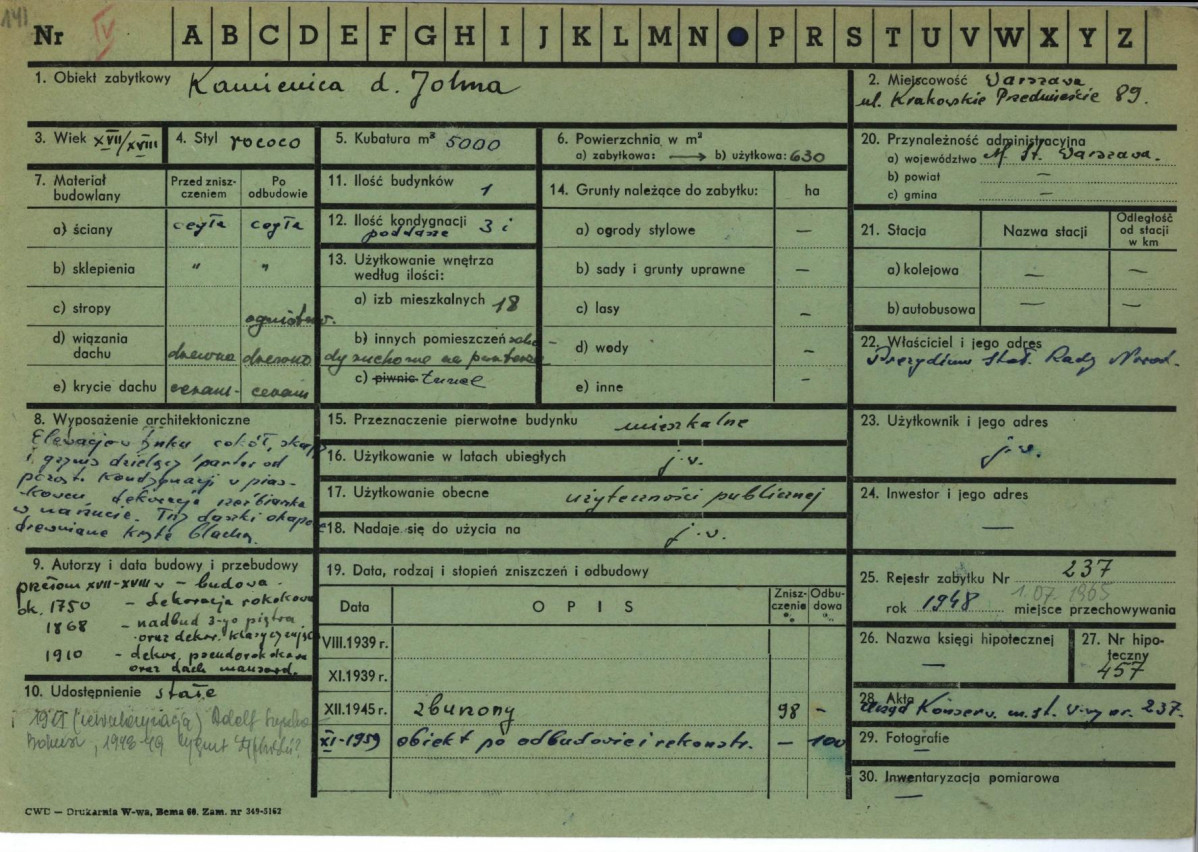 141
Nr IV A B C D E F G H I J K L M N P R S T U V W X Y Z
1. Obiekt zabytkowy Kamienica d. Johna
2. Miejscowość Warszawa
ul. Krakowskie Przedmieście 89.
3. Wiek XVII/XVIII
4. Styl rococo
5. Kubatura m³ 5000
6. Powierzchnia w m²
a) zabytkowa: → b) użytkowa: 630
20. Przynależność administracyjna
a) województwo M. St. Warszawa.
b) powiat —
c) gmina —
7. Materiał budowlany
Przed znisz-
czeniem
Po
odbudowie
a) ściany cegła cegła
b) sklepienia " "
c) stropy ogniotrw.
d) wiązania
dachu drewno drewno
e) krycie dachu ceram. ceram
11. Ilość budynków 1
12. Ilość kondygnacji 3 i
poddasze
13. Użytkowanie wnętrza
według ilości:
a) izb mieszkalnych 18
b) innych pomieszczeń scho-
dy ruchome na parterze
c) piwnic tunel
14. Grunty należące do zabytku: ha
a) ogrody stylowe —
b) sady i grunty uprawne —
c) lasy —
d) wody —
e) inne —
21. Stacja Nazwa stacji
Odległość
od stacji
w km
a) kolejowa — —
b) autobusowa — —
22. Właściciel i jego adres
Prezydium Stoł. Rady Narod.
8. Wyposażenie architektoniczne
Elewacje w tynku cokół,
i gzyms dzielący parter od
pozost. kondygnacji w pias-
kowcu, dekoracja rzeźbiarska
w narzucie. Trzy daszki okapowe
drewniane kryte blachą.
15. Przeznaczenie pierwotne budynku mieszkalne
16. Użytkowanie w latach ubiegłych j.w.
17. Użytkowanie obecne użyteczności publicznej
18. Nadaje się do użycia na j.w.
23. Użytkownik i jego adres
j.w.
24. Inwestor i jego adres
—
9. Autorzy i data budowy i przebudowy
przełom XVII-XVIII w – budowa
ok. 1750 – dekoracja rokokowa
1868 – nadbud 3-go piętra
oraz dekor. klasycyzująca
1910 – dekor. pseudorokokowa
oraz dach mansard.
10. Udostępnienie stałe
Adolf Szyszko
Bohusz, 1948-49 Zygmunt Stępiński?
19. Data, rodzaj i stopień zniszczeń i odbudowy
Data O P I S
Znisz-
czenie
%
Odbu-
dowa
%
VIII.1939 r.
XI.1939 r.
XII.1945 r. zburzony 98 –
XI-1959 obiekt po odbudowie i rekonstr. – 100
25. Rejestr zabytku Nr 237
1.07.1965
rok 1948 miejsce przechowywania
26. Nazwa księgi hipotecznej
—
27. Nr hipo-
teczny
457
28. Akta
Urząd Konserw. m. st. W-wy nr. 237.
29. Fotografie
—
30. Inwentaryzacja pomiarowa
—
CWD — Drukarnia W-wa, Bema 60. Zam. nr 349-5162